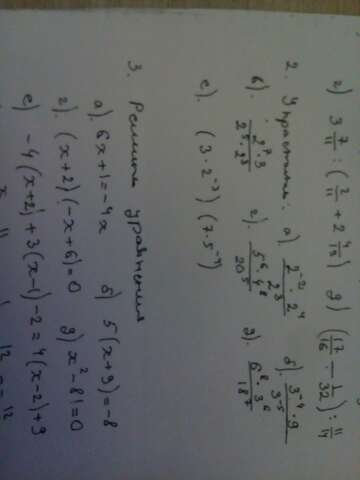 г) 3 7/11 : (2/11 + 2 4/13) д) (17/16 - 1/32) : 11/14
2. Упростить: а) 2^-21 · 2^4 / 2^3 б) 3^-4 · 9 / 3^-5
в). 2^7 · 3 / 2^5 · 2^8 г). 5^6 · 4^8 / 20^5 д). 6^8 · 3^6 / 18^7
е). (3 · 2^-7) (7 · 5^-4)
3. Решить уравнения
а). 6x+1=-4x б) 5(x+9)=-8
г). (x+2)(-x+6)=0 д) x²-81=0
е) -4(x+2)+3(x-1)-2=4(x-2)+9